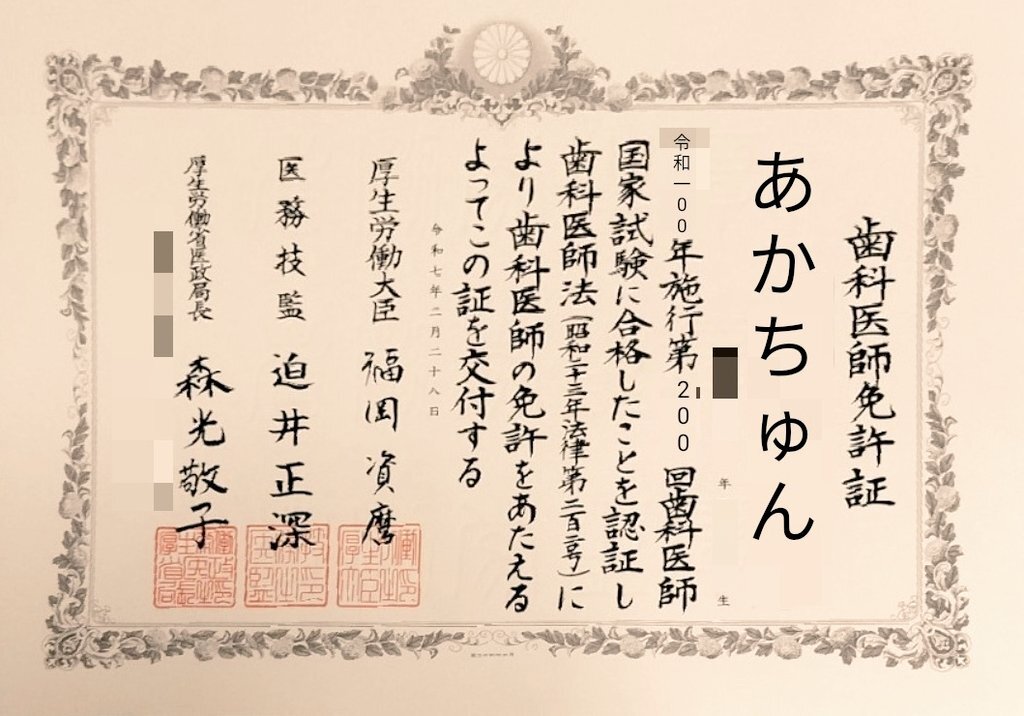 歯科医師免許証
あかちゅん
年
生
令和一00年施行第200回歯科医師
国家試験に合格したことを認証し
歯科医師法(昭和二十三年法律第二百二号)に
より歯科医師の免許をあたえる
よってこの証を交付する
令和七年二月二十八日
厚生労働大臣 福岡資麿
医務技監 迫井正深
厚生労働省医政局長 森光敬子